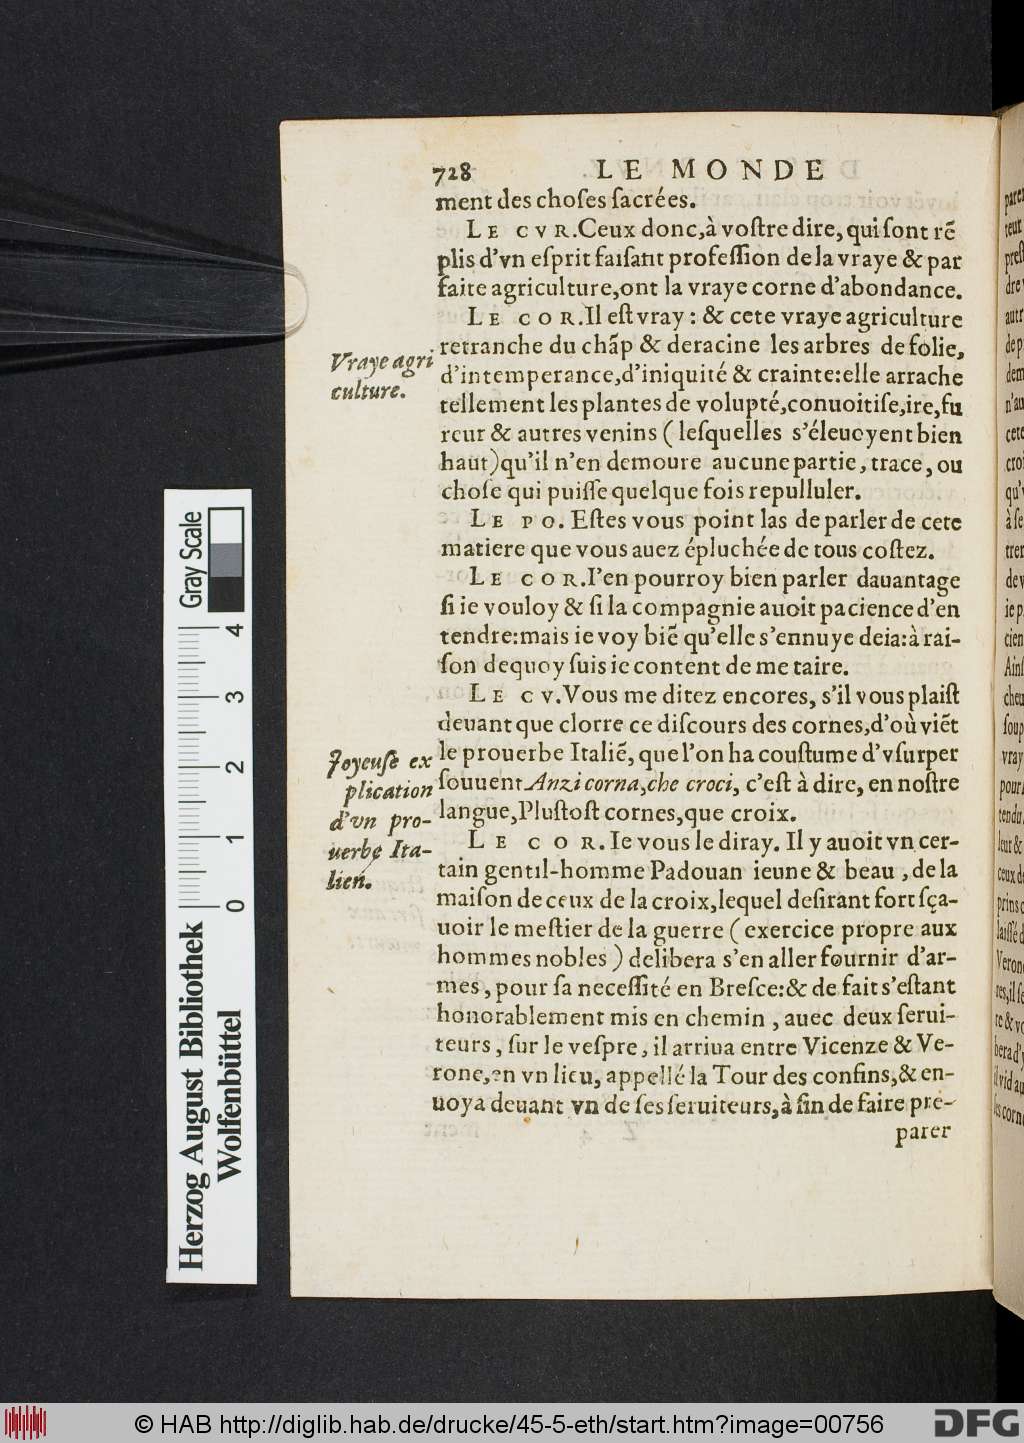 728 LE MONDE
ment des choſes ſacrées.
LE CVR. Ceux donc, à voſtre dire, qui ſont rẽ
plis d'vn eſprit faiſant profeſſion de la vraye & par
faite agriculture, ont la vraye corne d'abondance.
LE COR. Il eſt vray : & cete vraye agriculture
retranche du chãp & deracine les arbres de folie,
d'intemperance, d'iniquité & crainte: elle arrache
tellement les plantes de volupté, conuoitiſe, ire, fu
reur & autres venins ( leſquelles s'éleuoyent bien
haut) qu'il n'en demoure aucune partie, trace, ou
choſe qui puiſſe quelque fois repulluler.
LE PO. Eſtes vous point las de parler de cete
matiere que vous auez épluchée de tous coſtez.
LE COR. I'en pourroy bien parler dauantage
ſi ie vouloy & ſi la compagnie auoit pacience d'en
tendre: mais ie voy biẽ qu'elle s'ennuye deia: à rai-
ſon dequoy ſuis ie content de me taire.
LE CV. Vous me ditez encores, s'il vous plaiſt
deuant que clorre ce diſcours des cornes, d'où viẽt
le prouerbe Italiẽ, que l'on ha couſtume d'vſurper
ſouuent Anzi corna, che croci, c'eſt à dire, en noſtre
langue, Pluſtoſt cornes, que croix.
LE COR. Ie vous le diray. Il y auoit vn cer-
tain gentil-homme Padouan ieune & beau , de la
maiſon de ceux de la croix, lequel deſirant fort ſça-
uoir le meſtier de la guerre ( exercice propre aux
hommes nobles ) delibera s'en aller fournir d'ar-
mes , pour ſa neceſſité en Breſce: & de fait s'eſtant
honorablement mis en chemin , auec deux ſerui-
teurs , ſur le veſpre, il arriua entre Vicenze & Ve-
rone, en vn lieu, appellé la Tour des confins, & en-
uoya deuant vn de ſes ſeruiteurs, à fin de faire pre-
parer
Vraye agri
culture.
Joyeuſe ex
plication
d'vn pro-
uerbe Ita-
lien.
Gray Scale
4
3
2
1
0
Herzog August Bibliothek
Wolfenbüttel
© HAB http://diglib.hab.de/drucke/45-5-eth/start.htm?image=00756
DFG